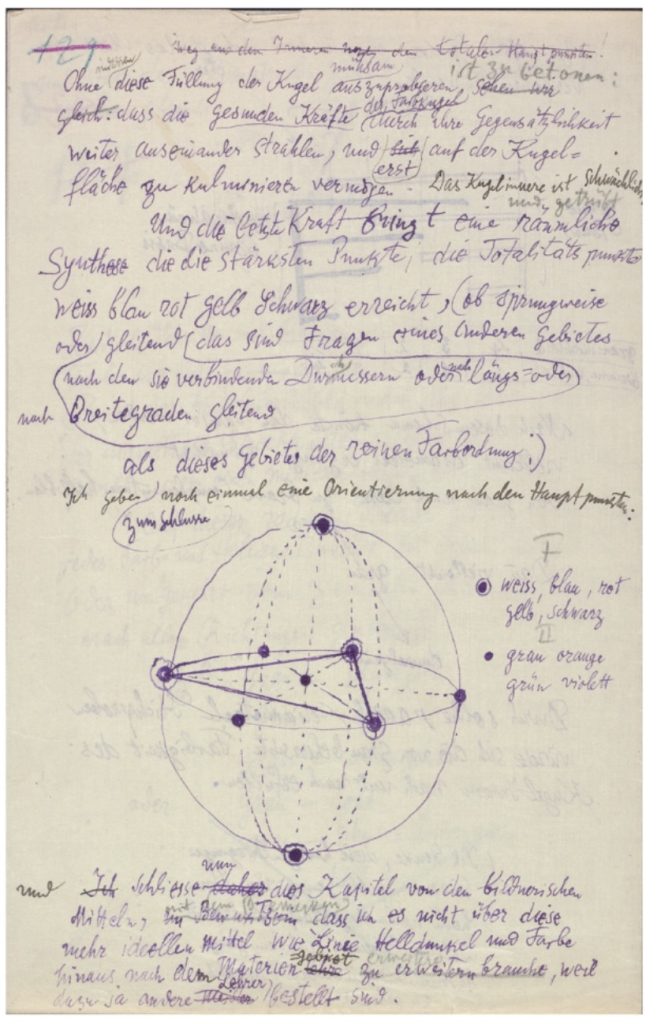 129
Weg aus dem Inneren nach den totalen Hauptpunkten!
ist zu betonen:
Ohne diese Füllung der Kugel mühsam auszuprobieren, sehen wir
gleich: dass die gesunden Kräfte durch ihre Gegensätzlichkeit
weiter auseinander strahlen, und erst auf der Kugel=
fläche zu kulminieren vermögen. Das Kugelinnere ist schwächlich
und getrübt
Und die letzte Kraft bringt eine räumliche
Synthese die die stärksten Punkte, die Totalitätspunkte
weiss blau rot gelb schwarz erreicht, (ob sprungweise
oder gleitend das sind Fragen eines anderen Gebietes
nach den sie verbindenden Durmessern oder nach längs=oder
nach Breitegraden gleitend
als dieses Gebietes der reinen Farbordnung.)
Ich gebe noch einmal eine Orientierung nach den Hauptpunkten:
zum Schlusse
I
weiss, blau, rot
gelb, schwarz
II
grau orange
grün violett
und Ich schliesse nun daher dies Kapitel von den bildnerischen
Mitteln, mit dem Bemerken dass ich es nicht über diese
mehr ideellen Mittel wie Linie Helldunkel und Farbe
hinaus nach dem Materiengebiet zu erweitern brauche, weil
dazu ja andere Lehrer bestellt sind.